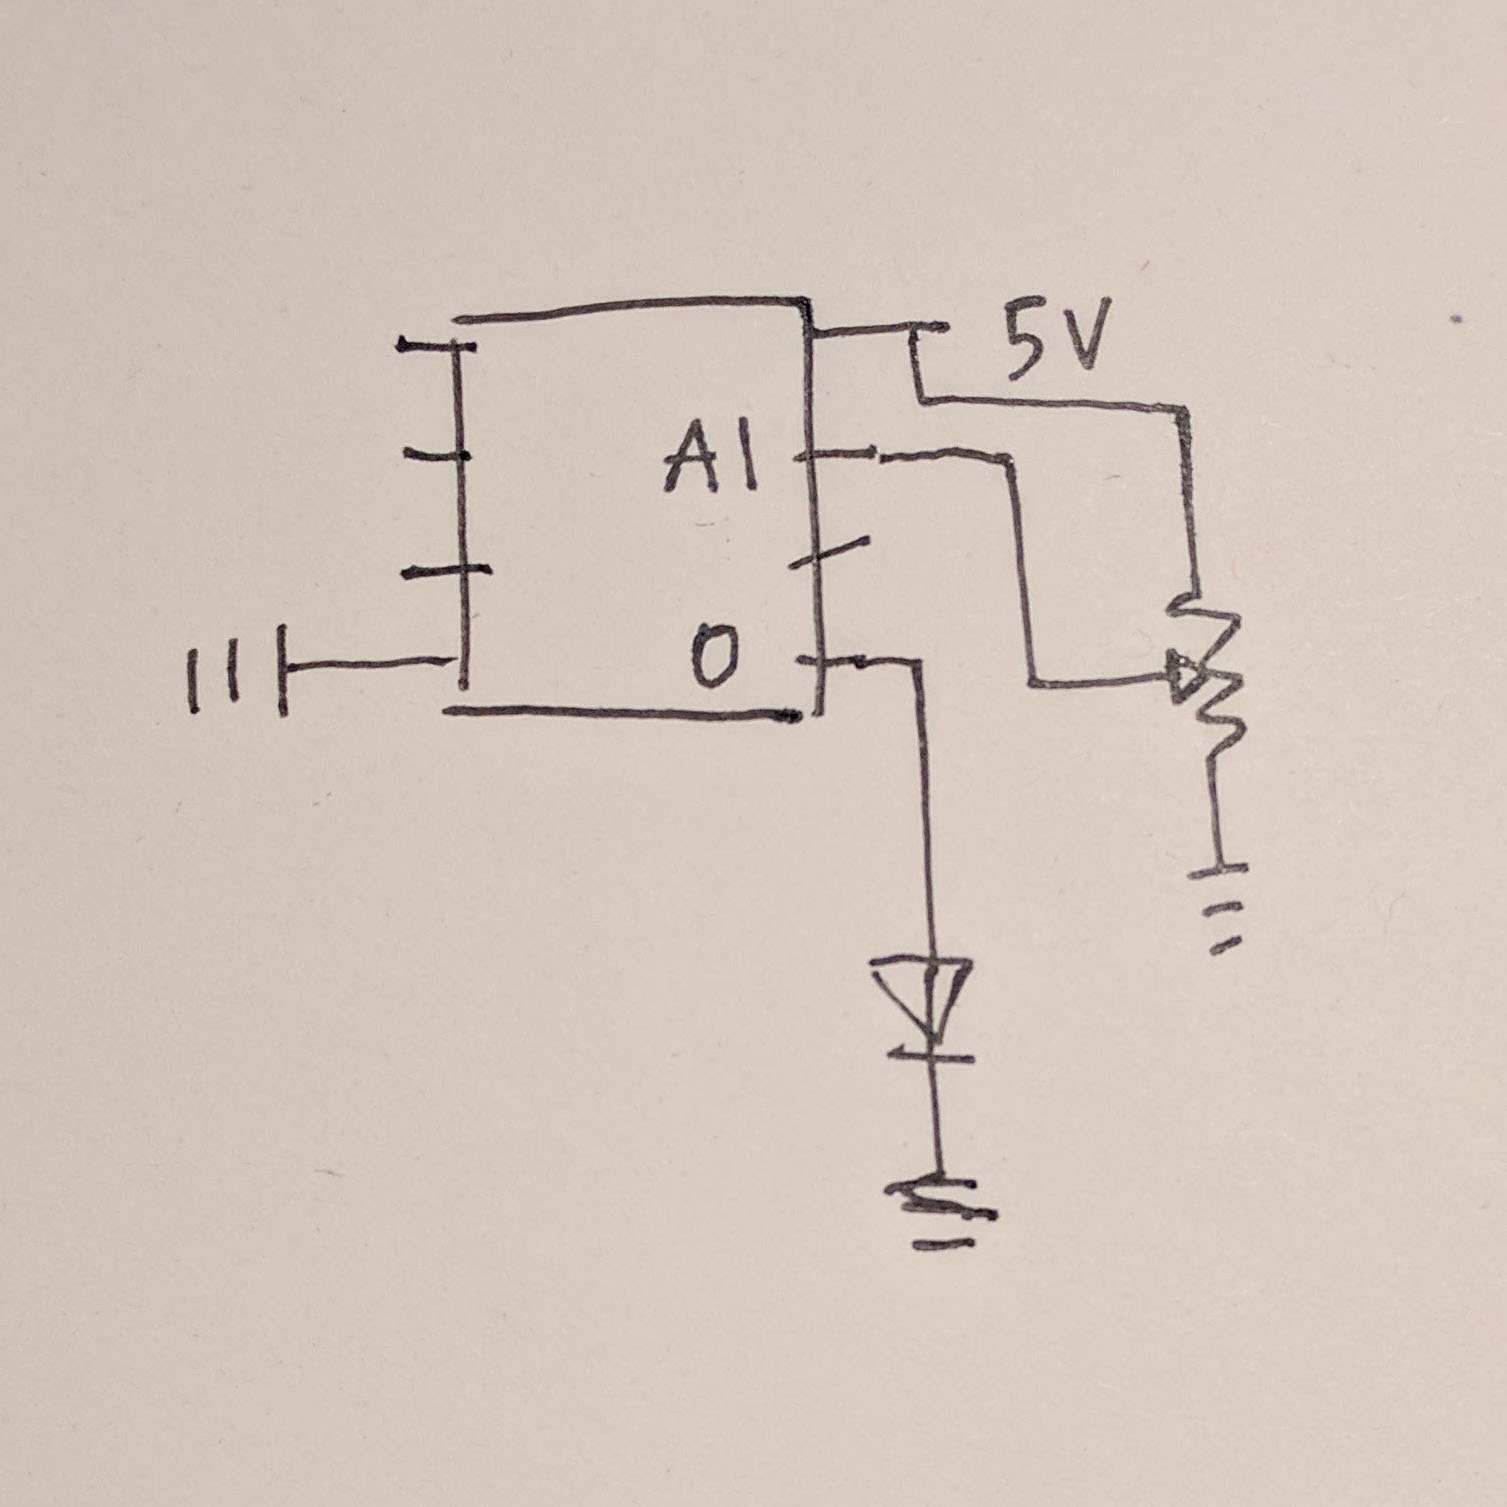 5V
A1
0